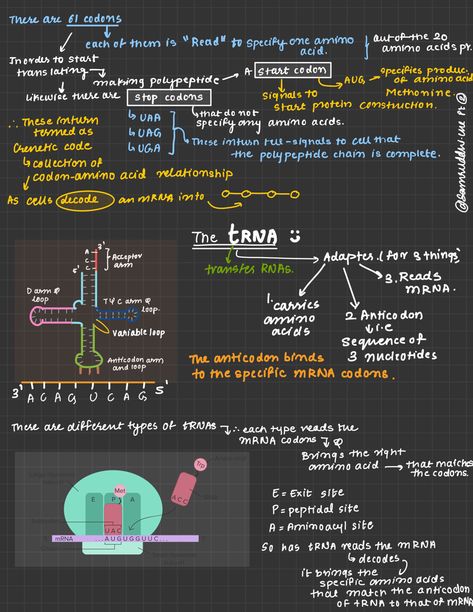 There are 61 codons
each of them is "Read" to specify one amino acid.
out of the 20
amino acids pr
In order to start
translating
making polypeptide
A start codon
AUG
specifies produc.
of amino acid
Methionine.
Signals to
start protein construction.
likewise there are
stop codons
that do not
specify any amino acids.
UAA
UAG
UGA
These inturn tell-signals to cell that
the polypeptide chain is complete.
∴ These inturn
termed as
Genetic code
collection of
codon-amino acid relationship
As cells decode an mRNA into
The tRNA
transfer RNAs.
Adapter (for 3 things)
1. carries
amino
acids
2 Anticodon
i.e
sequence of
3 nucleotides
3. Reads
mRNA.
3'
A
C
C
5'
Acceptor
arm
D arm &
loop
TΨC arm &
loop
Variable loop
Anticodon arm
and loop
3' A C A G U C A G 5'
The anticodon binds
to the specific mRNA codons.
There are different types of tRNAs
∴ each type reads the
mRNA codons &
Brings the right
amino acid
that matche
the codons.
E P A
Met
UAC
Trp
ACC
mRNA
...AUGUGGUUC...
E = Exit site
P = peptidal site
A = Aminoacyl site
So has tRNA reads the mRNA
decodes,
it brings the
specific amino acids
that match the anticodon
of tRNA to that of mRNA